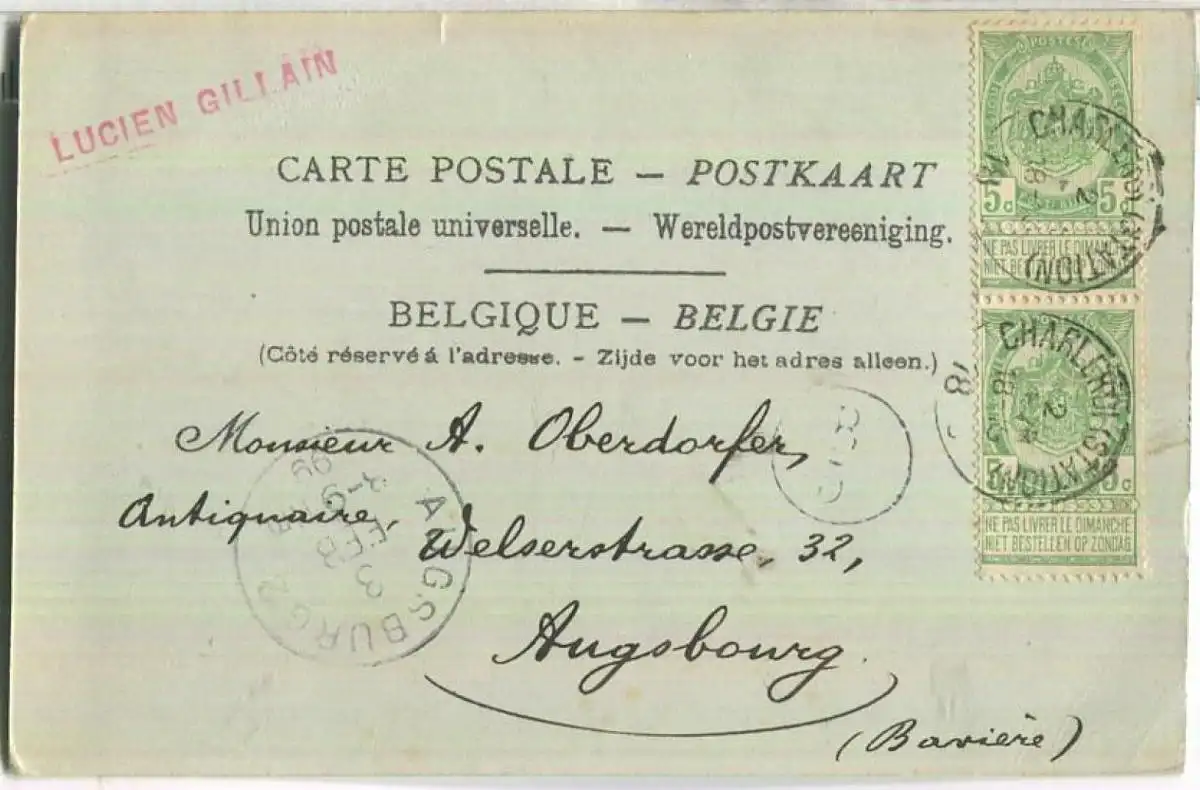 LUCIEN GILLAIN
CARTE POSTALE — POSTKAART
Union postale universelle. — Wereldpostvereeniging.
BELGIQUE — BELGIE
(Côté réservé á l'adresse. - Zijde voor het adres alleen.)
Monsieur A. Oberdorfer,
Antiquaire, Welserstrasse, 32,
Augsbourg
(Bavière)
POSTES
5c 5c
NE PAS LIVRER LE DIMANCHE
NIET BESTELLEN OP ZONDAG
CHARLEROI (STATION)
POSTES
5c 5c
NE PAS LIVRER LE DIMANCHE
NIET BESTELLEN OP ZONDAG
CHARLEROI (STATION)
AUGSBURG 2
3 FEB
99